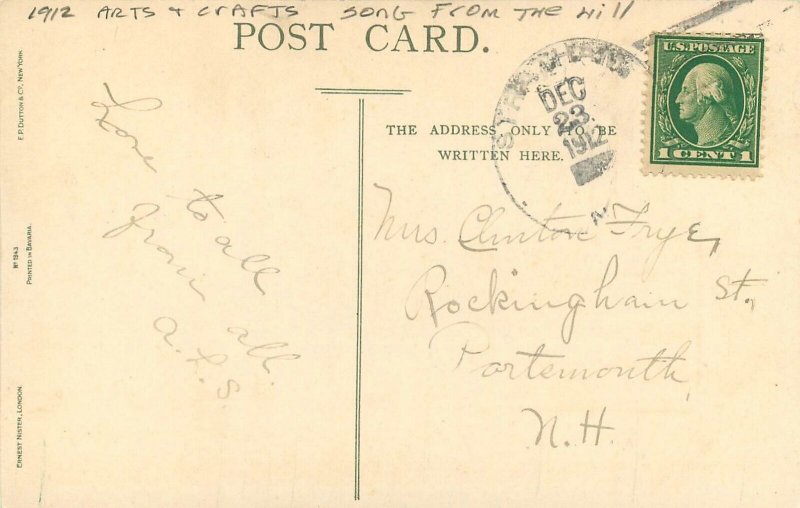 1912 ARTS & CRAFTS SONG FROM THE Hill
POST CARD.
E.P. DUTTON & CO. NEW YORK.
Nº 1943
PRINTED IN BAVARIA.
ERNEST NISTER, LONDON.
Love to all
from all.
A.L.S.
THE ADDRESS ONLY TO BE
WRITTEN HERE.
DEC
23
1912
U.S. POSTAGE
1 CENT 1
Mrs. Clinton Frye,
Rockingham St.,
Portsmouth,
N.H.